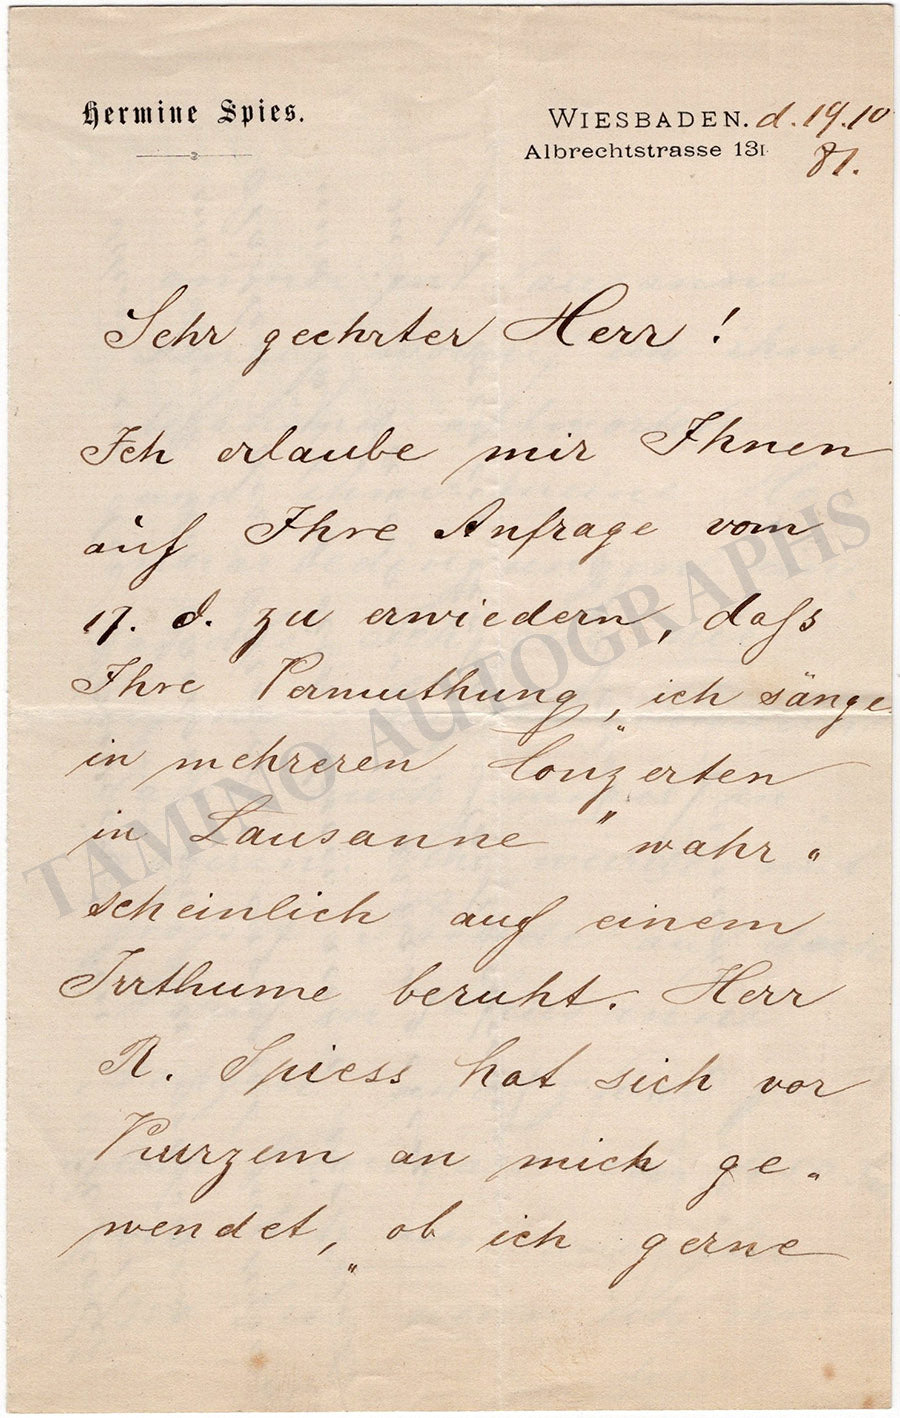 Hermine Spies.
WIESBADEN. d. 19. 10
Albrechtstrasse 13I
81.
Sehr geehrter Herr!
Ich erlaube mir Ihnen
auf Ihre Anfrage vom
17. d. zu erwiedern, dass
Ihre Vermuthung, „ich sänge
in mehreren Conzerten
in Lausanne" wahr„
scheinlich auf einem
Irrthume beruht. Herr
R. Spiess hat sich vor
Kurzem an mich ge„
wendet, „ob ich gerne
TAMINO AUTOGRAPHS